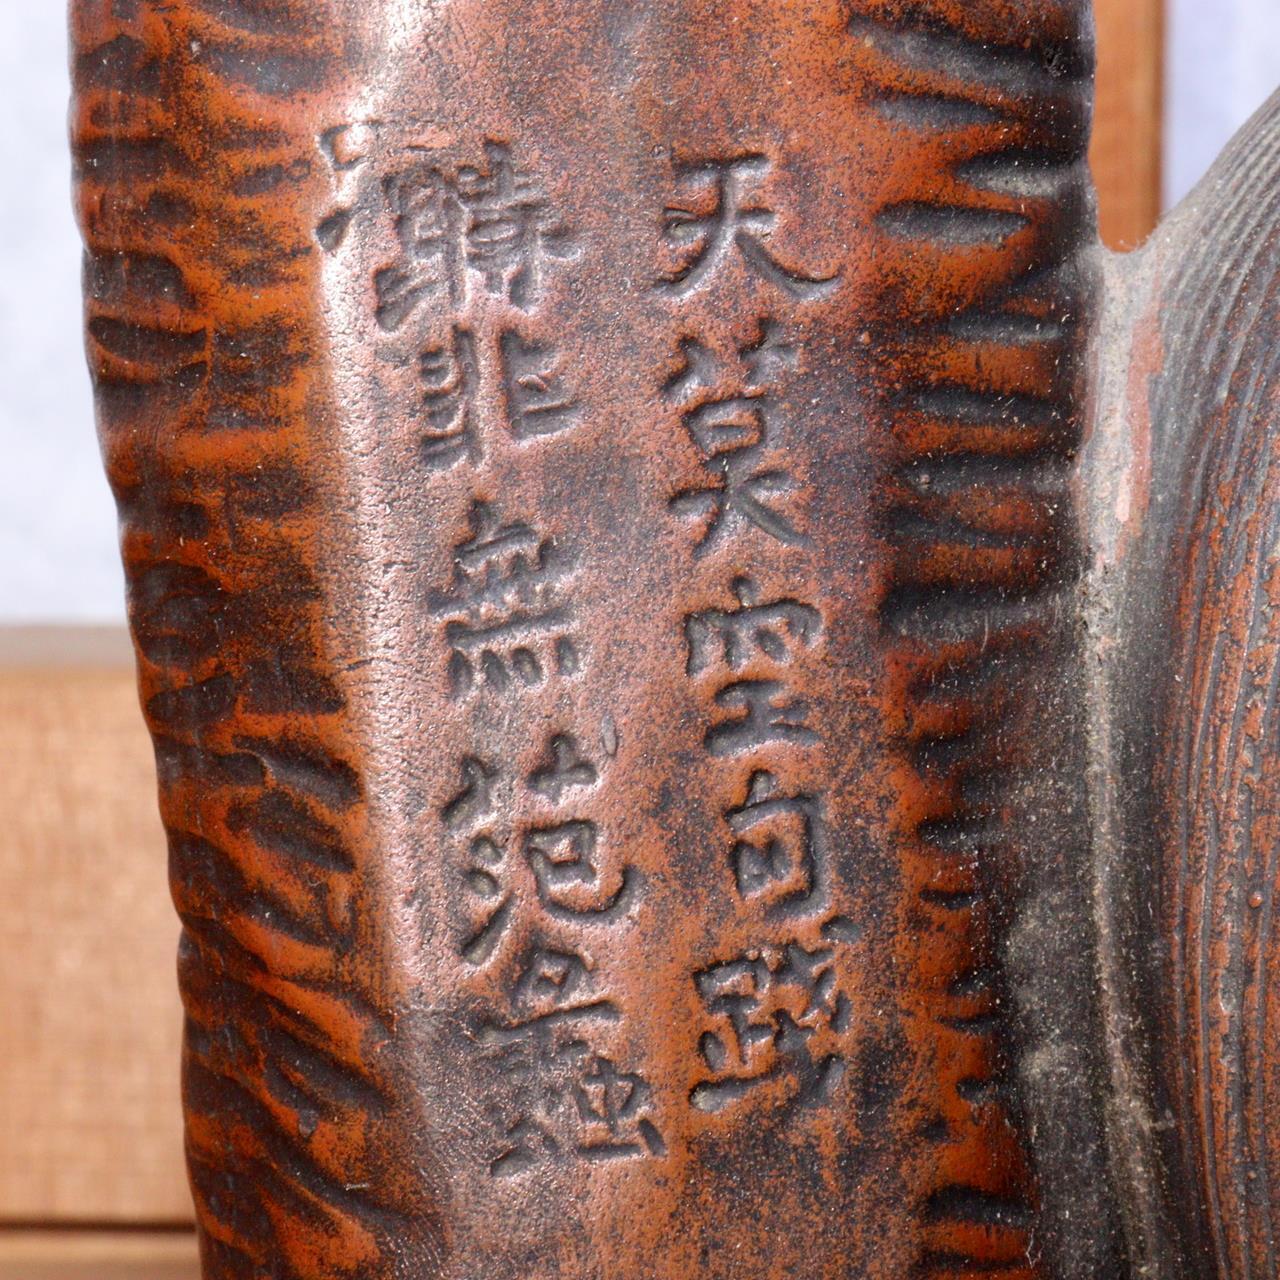 天莫空勾踐
時非無范蠡